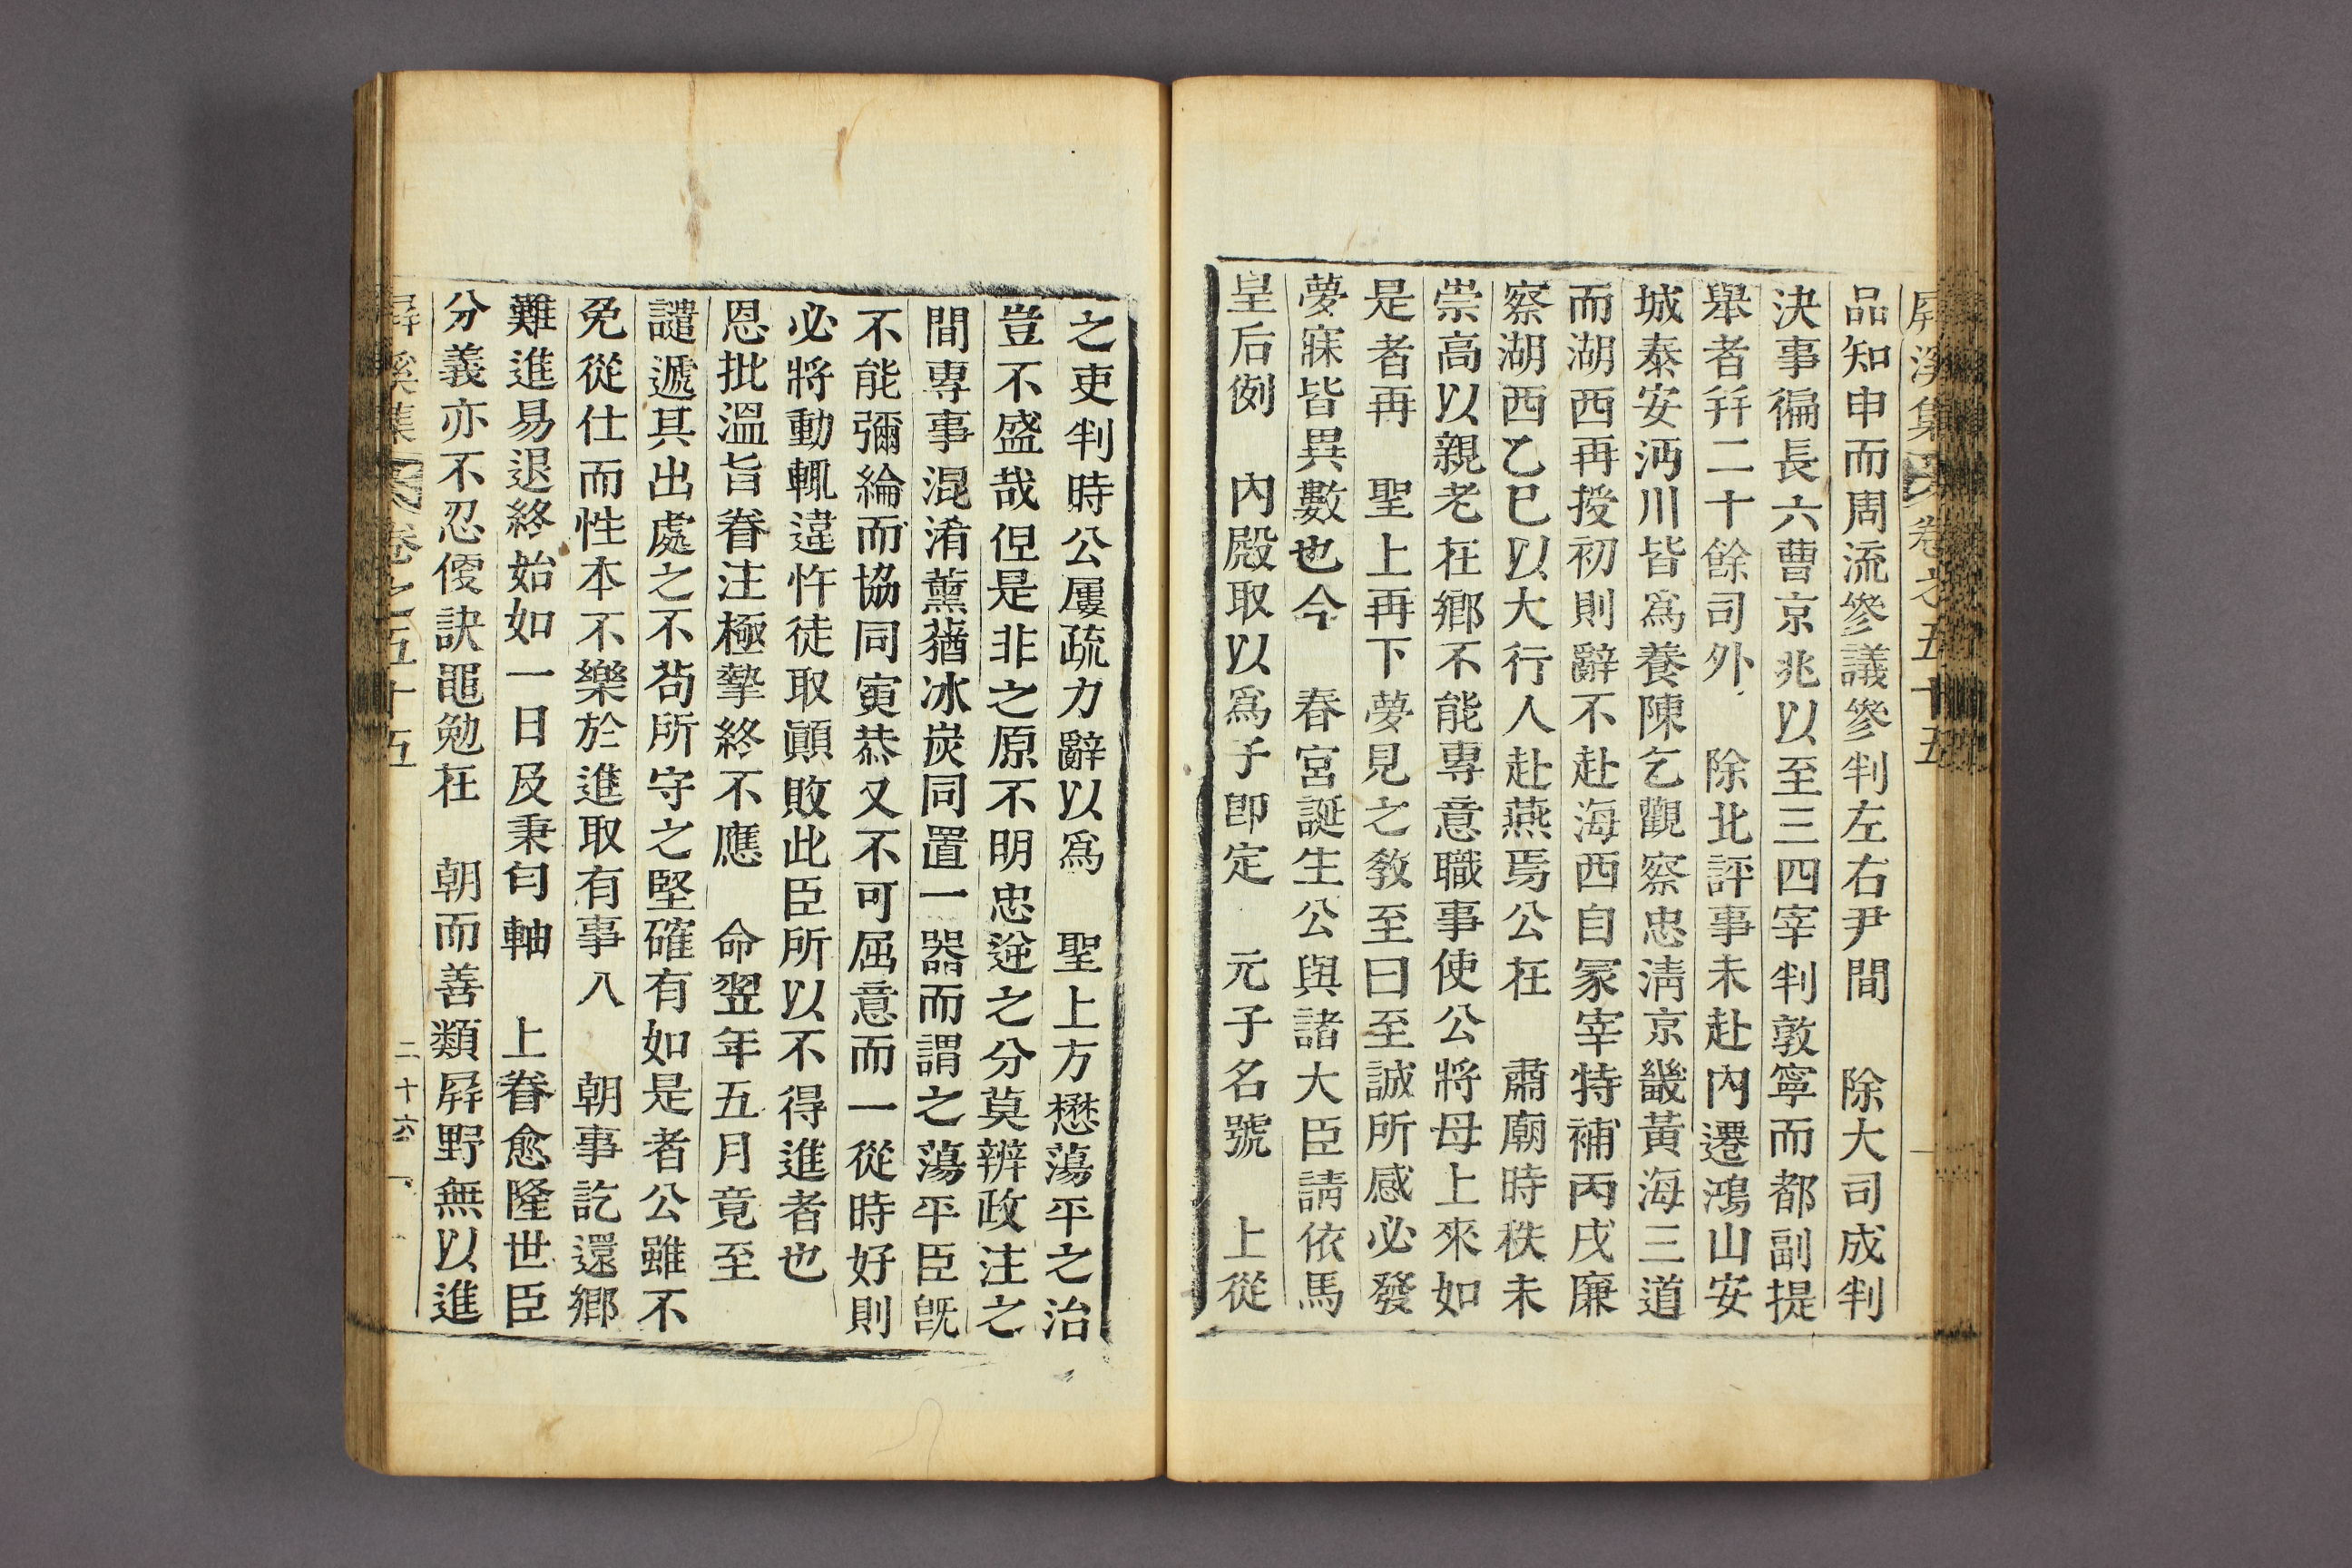 屛溪集 卷之五十五
品知申而周流參議參判左右尹間 除大司成判
決事徧長六曹京兆以至三四宰判敦寧而都副提
擧者幷二十餘司外 除北評事未赴內遷鴻山安
城泰安沔川皆爲養陳乞觀察忠淸京畿黃海三道
而湖西再授初則辭不赴海西自冢宰特補丙戌廉
察湖西乙巳以大行人赴燕焉公在 肅廟時秩未
崇高以親老在鄕不能專意職事使公將母上來如
是者再 聖上再下夢見之敎至曰至誠所感必發
夢寐皆異數也今 春宮誕生公與諸大臣請依馬
皇后例 內殿取以爲子卽定 元子名號 上從
之吏判時公屢疏力辭以爲 聖上方懋蕩平之治
豈不盛哉但是非之原不明忠逆之分莫辨政注之
間專事混淆薰蕕冰炭同置一器而謂之蕩平臣旣
不能彌綸而協同寅恭又不可屈意而一從時好則
必將動輒違忤徒取顚敗此臣所以不得進者也
恩批溫旨眷注極摯終不應 命翌年五月竟至
譴遞其出處之不苟所守之堅確有如是者公雖不
免從仕而性本不樂於進取有事八 朝事訖還鄕
難進易退終始如一日及秉匀軸 上眷愈隆世臣
分義亦不忍便訣黽勉在 朝而善類屛野無以進
屛溪集 卷之五十五 二十六